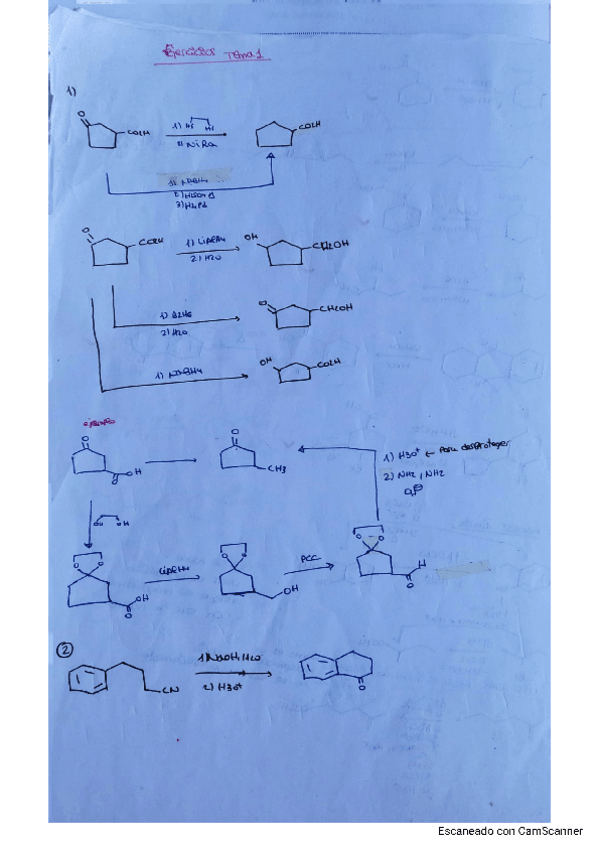 Ejercicios Tema 1
1)
O
CO2H
1) HS HS
2) NiRa
CO2H
1) NaBH4
2) H2SO4
3) H2Pd
O
CO2H
1) LiAlH4
2) H2O
OH
CH2OH
1) B2H6
2) H2O
O
CH2OH
1) NaBH4
OH
CO2H
ejemplo
O
OH
O
O
CH3
1) H3O+ ← Para desproteger
2) NH2, NH2
O
OH
O
O
OH
O
LiAlH4
O
O
OH
PCC
O
O
H
O
2
CN
1) NaOH, H2O
2) H3O+
O
Escaneado con CamScanner